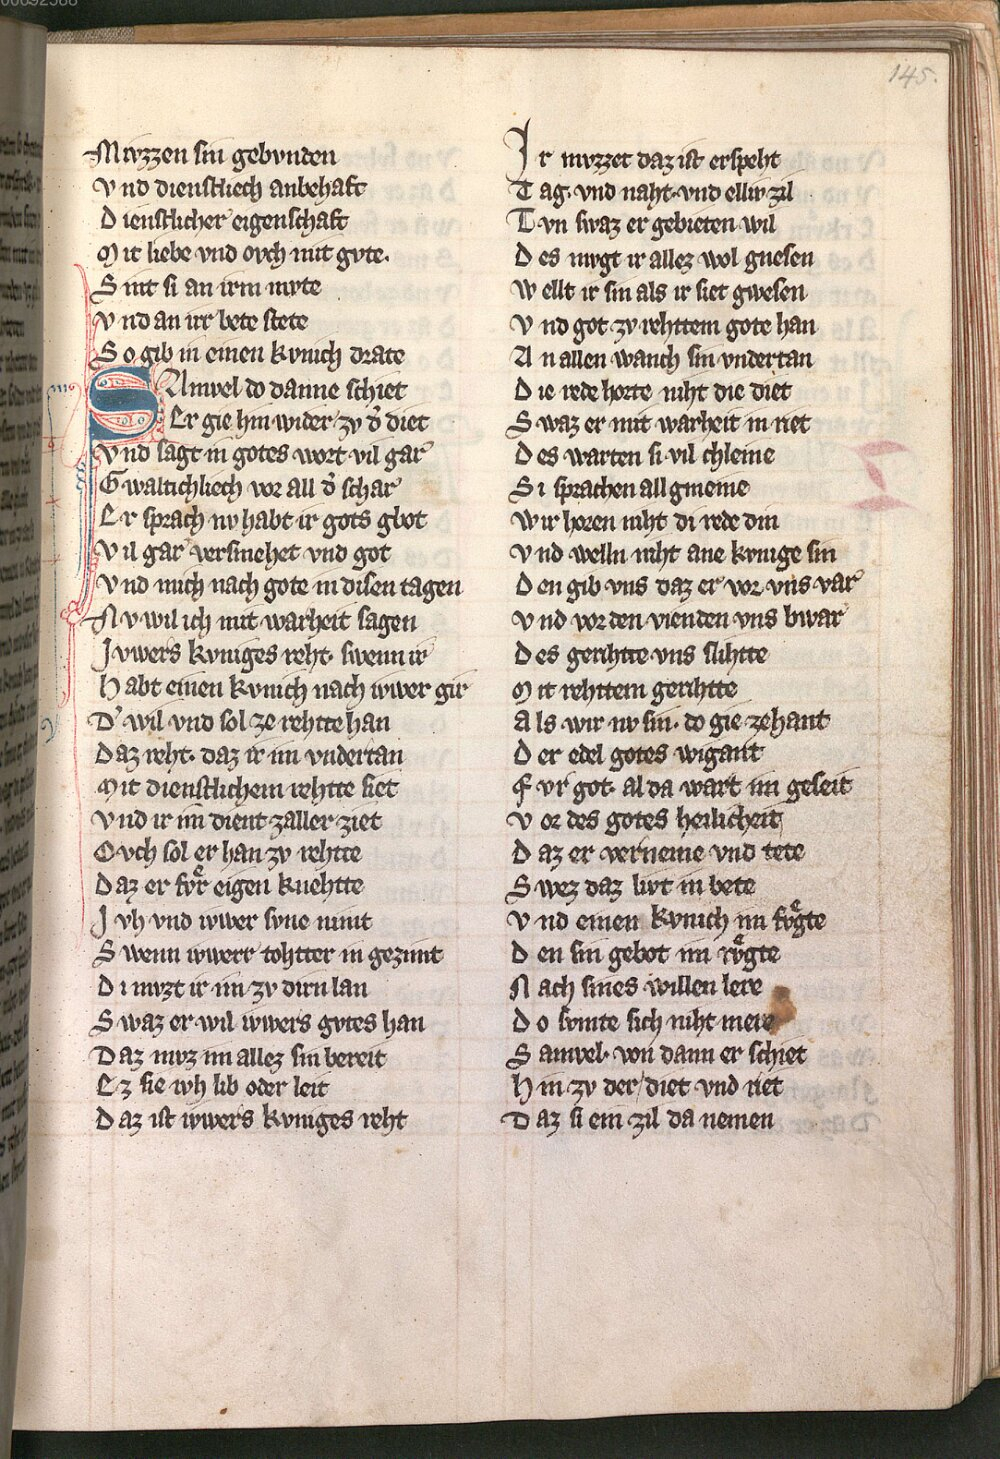 145.
Mvzzen sin gebvnden
Vnd dienstliech anbehaft
Dienstlicher eigenschaft
Mit liebe vnd ovch mit gvte.
Sint si an irm mvte
Vnd an irr bete stete
So gib in einen kvnich drate
SAmvel do danne schiet
Er gie hin wider zv d' diet
Vnd sagt in gotes wort vil gar
Gwaltichliech vor all d' schar
Er sprach nv habt ir gots gbot
Vil gar versmehet vnd got
Vnd mich nach gote in disen tagen
Nv wil ich mit warheit sagen
Ivwers kvniges reht. swenn ir
Habt einen kvnich nach ivwer gir
D' wil vnd sol ze rehtte han
Daz reht. daz ir im vndertan
Mit dienstlichem rehtte siet
Vnd ir im dient zaller ziet
Ovch sol er han zv rehtte
Daz er fvͤr eigen knehtte
Ivh vnd ivwer svne nimt
Swenn ivwerr tohtter in gezimt
Di mvzt ir im zv dirn lan
Swaz er wil ivwers gvtes han
Daz mvz im allez sin bereit
Ez sie ivh lib oder leit
Daz ist ivwers kvniges reht
Ir mvzzet daz ist erspeht
Tag. vnd naht. vnd elliv zil
Tvn swaz er gebieten wil
Des mvgt ir allez wol gnesen
Wellt ir sin als ir siet gwesen
Vnd got zv rehttem gote han
An allen wanch sin vndertan
Die rede horte niht die diet
Swaz er mit warheit in riet
Des warten si vil chleine
Si sprachen all gmeine
Wir horen niht di rede din
Vnd welln niht ane kvnige sin
Den gib vns daz er vor vns var
Vnd vor den vienden vns bwar
Des gerihtte vns slihtte
Mit rehttem gerihtte
Als wir nv sin. do gie zehant
Der edel gotes wigant
Fvr got. al da wart im geseit
Vor des gotes heilicheit
Daz er verneme vnd tete
Swez daz livt in bete
Vnd einen kvnich im fvͤgte
Den sin gebot im rvͤgte
Nach sines willen lere
Do svmte sich niht mere
Samvel. von dann er schiet
Hin zv der diet vnd riet
Daz si ein zil da nemen